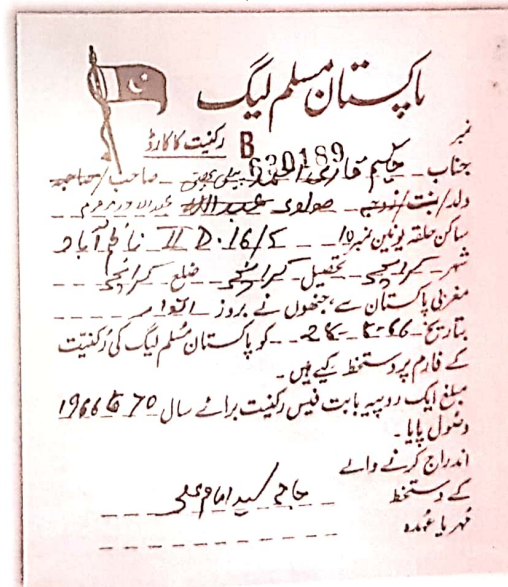 پاکستان مسلم لیگ
رکنیت کا کارڈ
نمبر B 630189
جناب حکیم قاری احمد پیلی بھیتی صاحب/صاحبہ
ولد/بنت/زوجہ مولوی
ساکن حلقہ یونین نمبر 10 II D. 16/5 ناظم آباد
شہر کراچی تحصیل کراچی ضلع کراچی
مغربی پاکستان سے، جنھوں نے بروز اتوار
بتاریخ 66 کو پاکستان مُسلم لیگ کی رُکنیّت
کے فارم پر دستخط کیے ہیں۔
مبلغ ایک روپیہ بابت فیس رکنیت برائے سال 1966 تا 70
وصُول پایا۔
اندراج کرنے والے
کے دستخط حاجی سید امام علی
مُہر یا عُہدہ